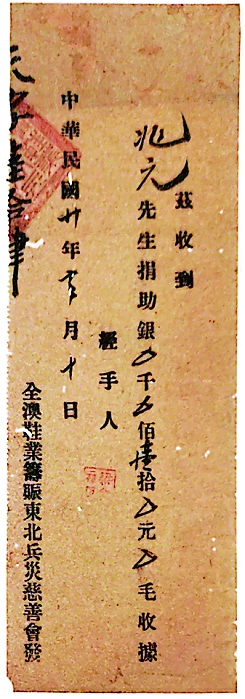 茲收到
兆元先生捐助銀〇千〇佰壹拾〇元〇毛收據
經手人
中華民國廿年月十日
全澳鞋業籌賑東北兵災慈善會發
字陸拾